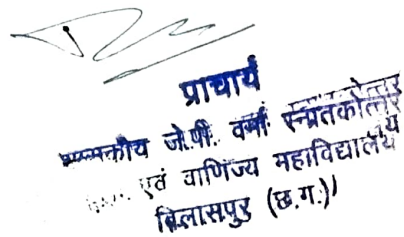 प्राचार्य
शासकीय जे.पी. वर्मा स्नातकोत्तर
एवं वाणिज्य महाविद्यालय
बिलासपुर (छ.ग.)